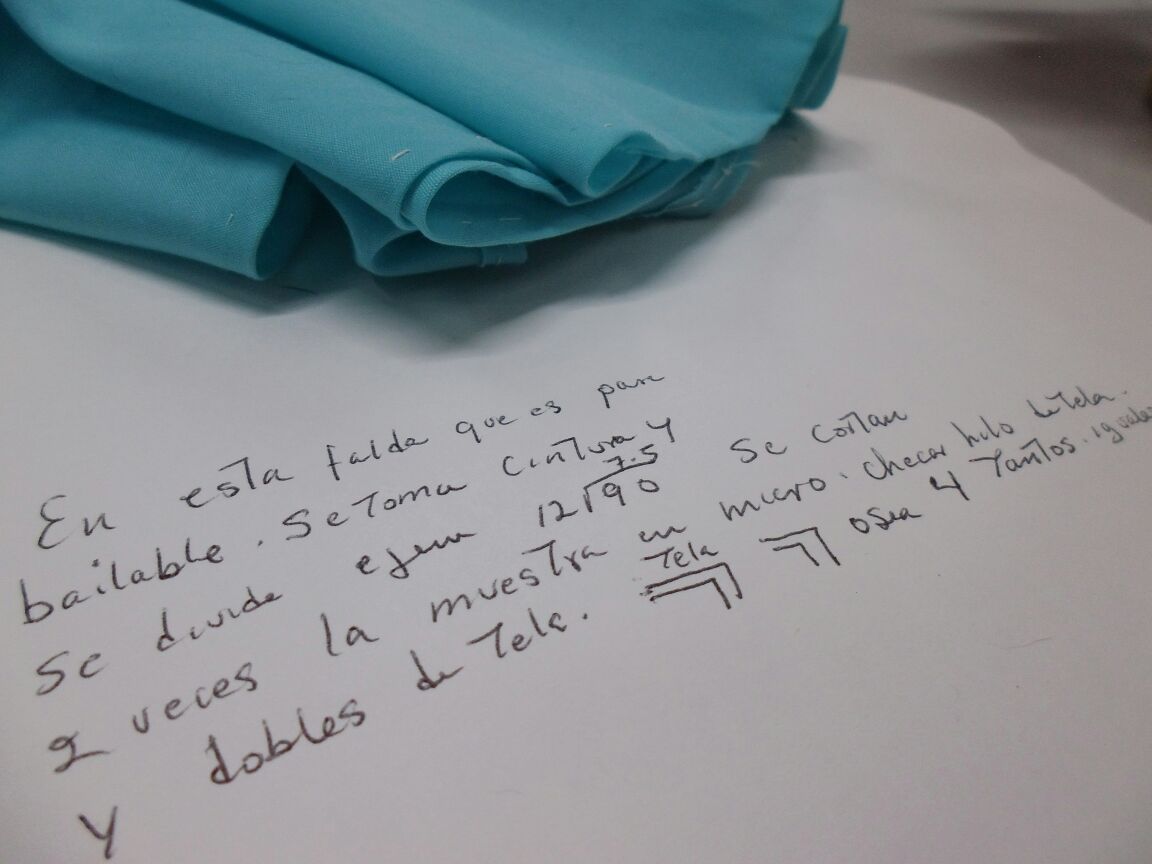 En esta falda que es para
bailable. Se toma cintura y
se divide ejem 12√90 7.5 Se cortan
2 veces la muestra en micro. checar hilo de tela.
y dobles de Tela. Tela osea 4 Tantos. iguales